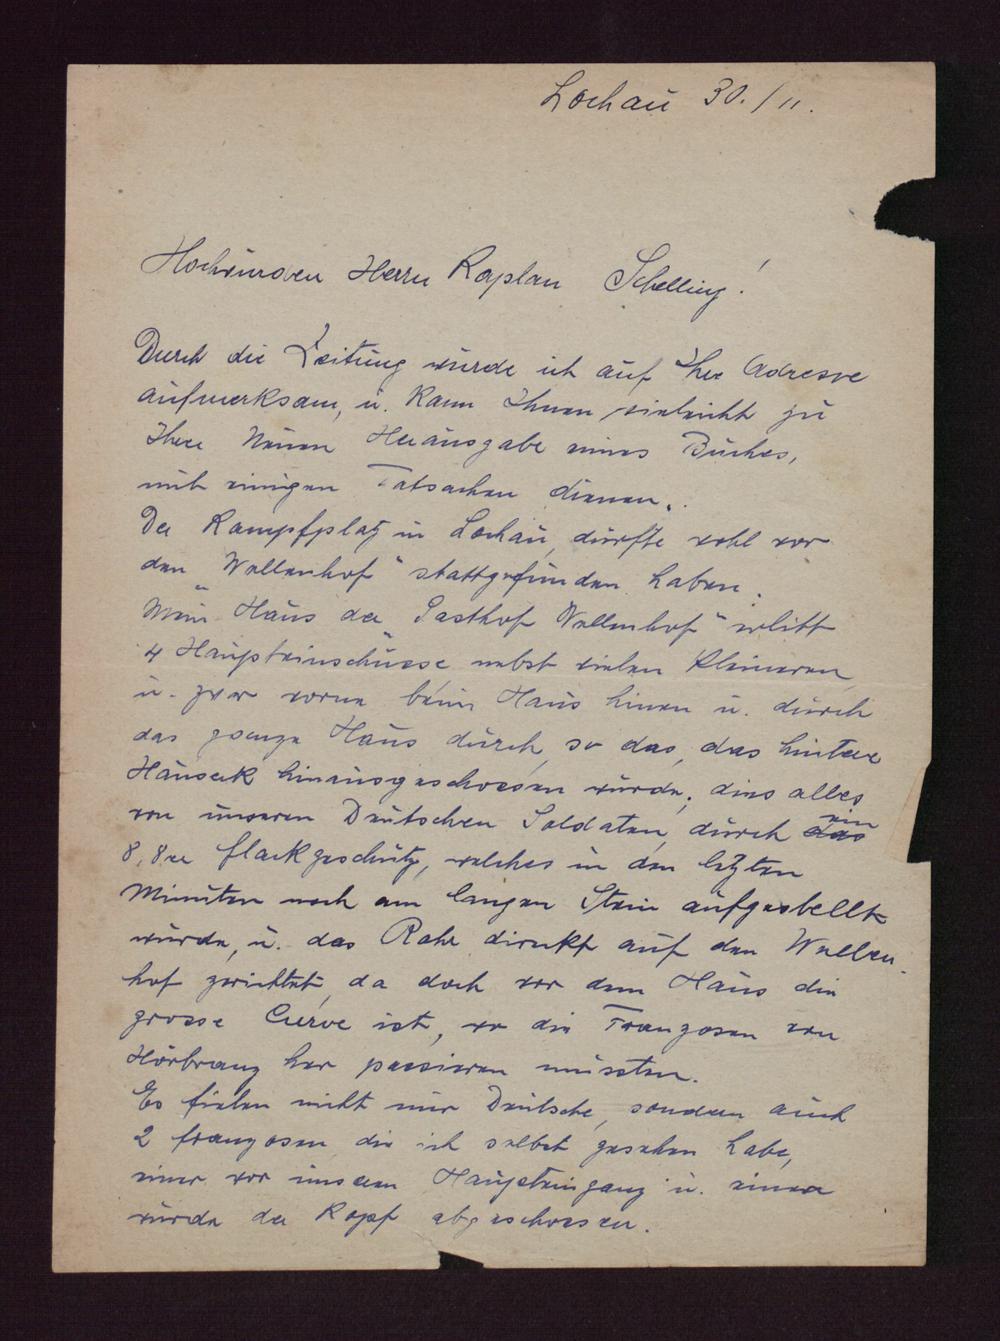 Lochau 30./11.
Hochwürden Herrn Kaplan Schelling!
Durch die Zeitung wurde ich auf Ihre Adresse
aufmerksam, u. kann Ihnen vieleicht zu
Ihrer Neuen Herausgabe eines Buches,
mit einigen Tatsachen dienen.
Der Kampfplatz in Lochau, dürfte wohl vor
den "Wellenhof" stattgefunden haben.
Mein Haus der "Gasthof Wellenhof" erlitt
4 Haupteinschüsse nebst vielen kleineren
u. zwar vorne beim Haus hinen u. durch
das ganze Haus durch, so das, das hintere
Hauseck hinausgeschossen wurde, dies alles
von unseren Deutschen Soldaten, durch ein
8,8er Flackgeschütz, welches in den letzten
Minuten noch am langen Stein aufgestellt
wurde, u. das Rohr direkt auf den Wellen-
hof gerichtet, da doch vor dem Haus die
grosse Curve ist, wo die Franzosen von
Hörbranz her passieren mussten.
Es fielen nicht nur Deutsche, sondern auch
2 Franzosen die ich selbst gesehen habe,
einer vor unserem Haupteingang u. einem
wurde der Kopf abgeschossen.